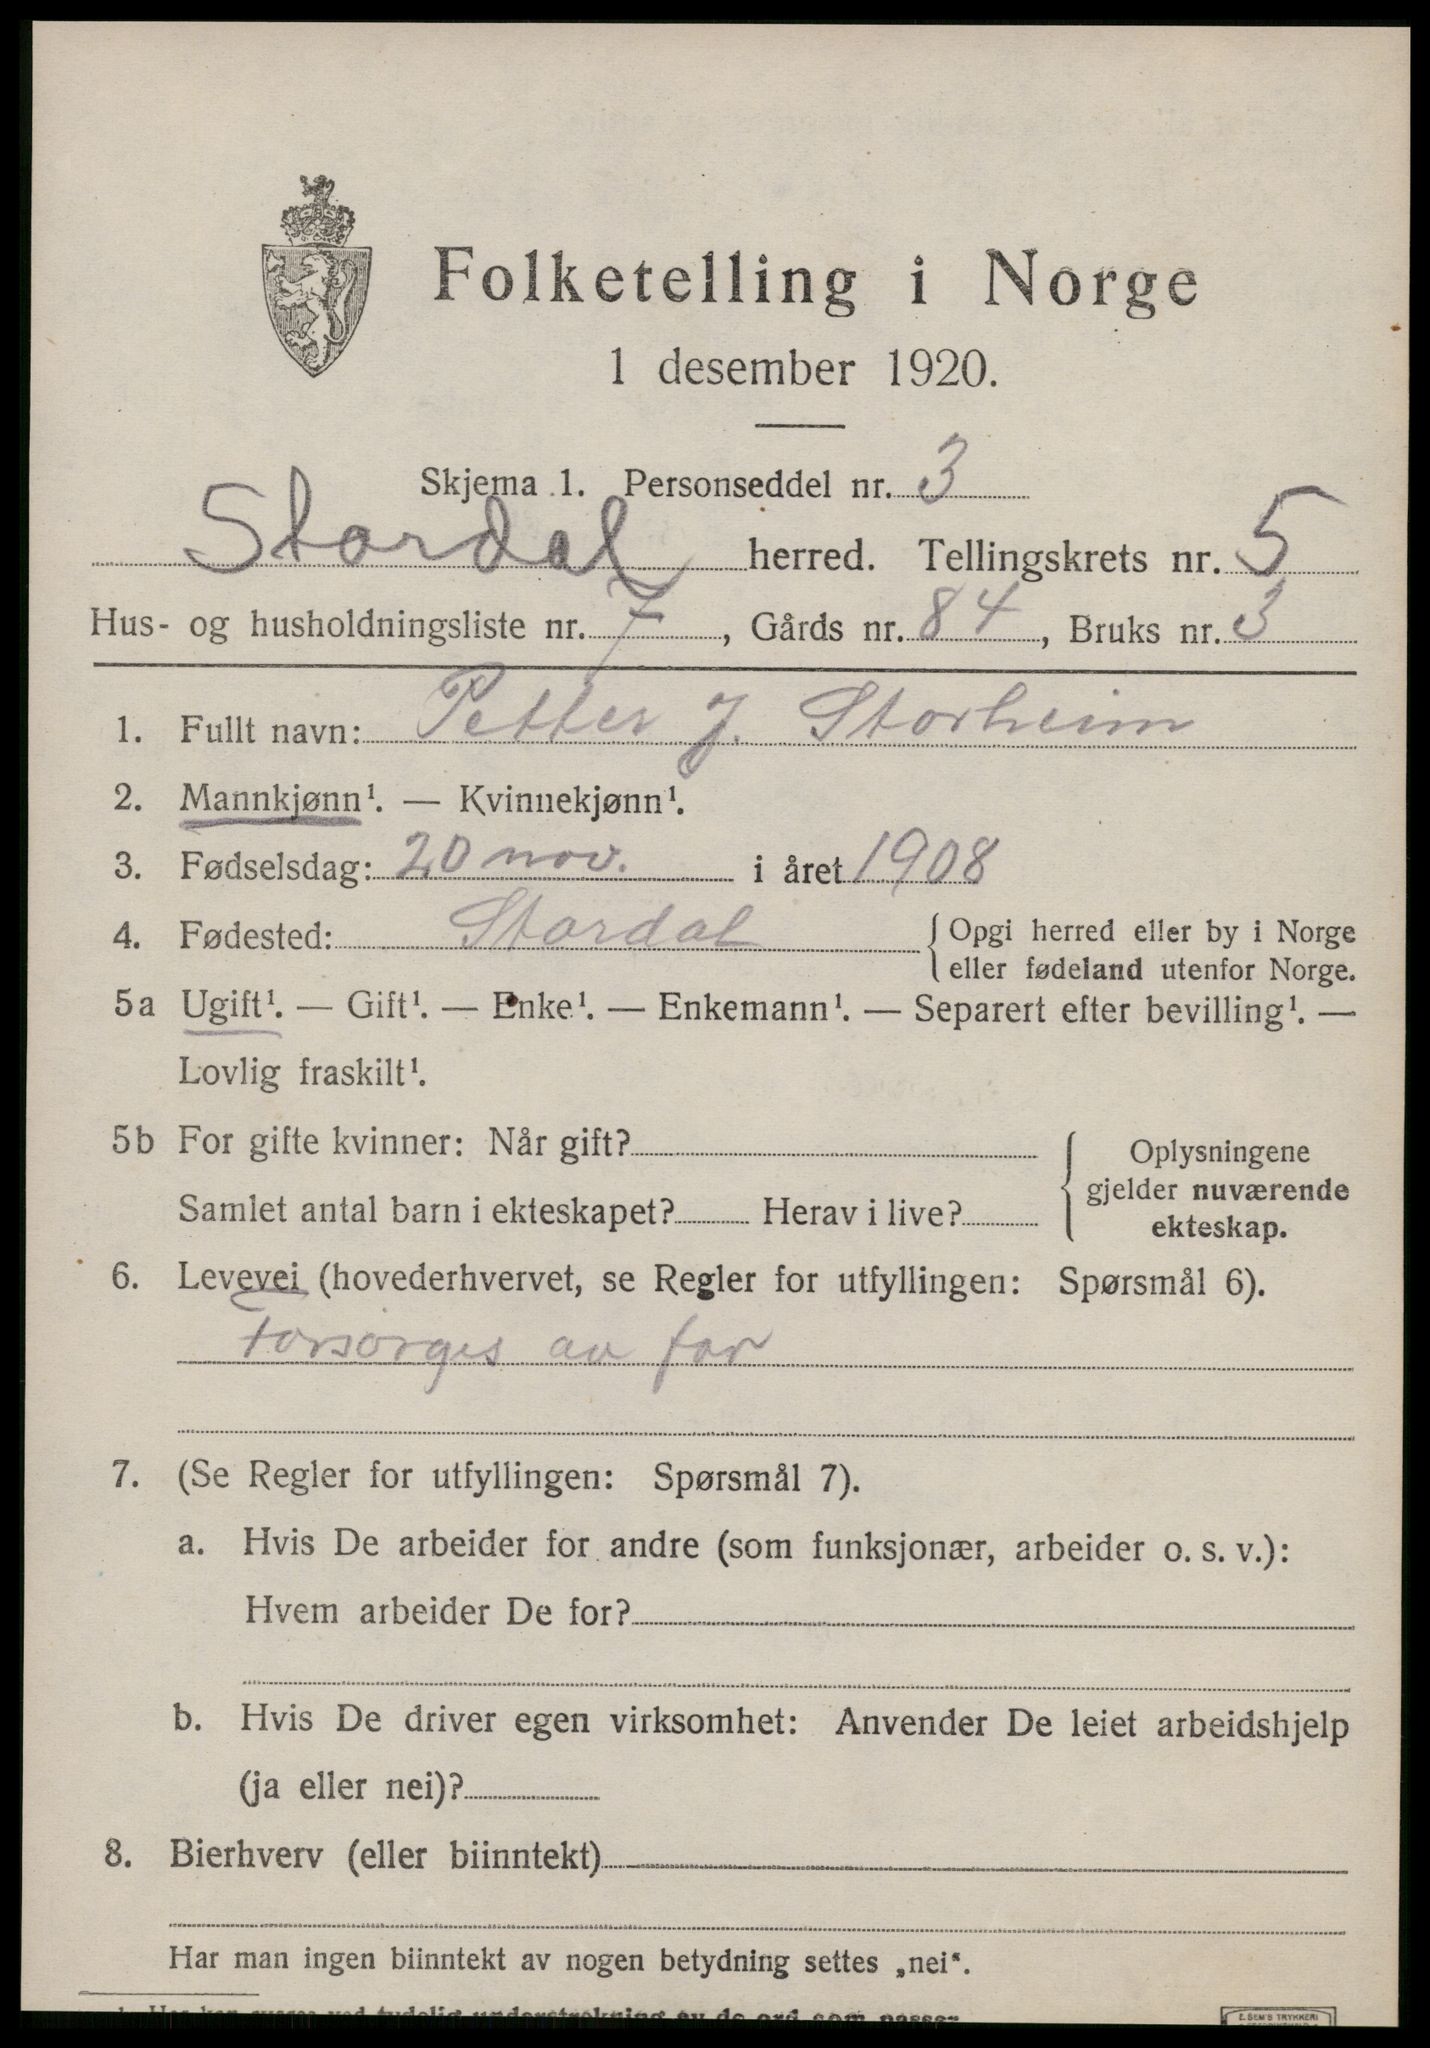 Folketelling i Norge
1 desember 1920.
Skjema 1. Personseddel nr. 3
Stordal herred. Tellingskrets nr. 5
Hus- og husholdningsliste nr. 7, Gårds nr. 84, Bruks nr. 3
1. Fullt navn: Petter J. Storheim
2. Mannkjønn¹. — Kvinnekjønn¹.
3. Fødselsdag: 20 nov. i året 1908
4. Fødested: Stordal { Opgi herred eller by i Norge
eller fødeland utenfor Norge.
5a Ugift¹. — Gift¹. — Enke¹. — Enkemann¹. — Separert efter bevilling¹. —
Lovlig fraskilt¹.
5b For gifte kvinner: Når gift? { Oplysningene
gjelder nuværende
Samlet antal barn i ekteskapet? Herav i live?
ekteskap.
6. Levevei (hovederhvervet, se Regler for utfyllingen: Spørsmål 6).
Forsorges av far
7. (Se Regler for utfyllingen: Spørsmål 7).
a. Hvis De arbeider for andre (som funksjonær, arbeider o. s. v.):
Hvem arbeider De for?
b. Hvis De driver egen virksomhet: Anvender De leiet arbeidshjelp
(ja eller nei)?
8. Bierhverv (eller biinntekt)
Har man ingen biinntekt av nogen betydning settes „nei“.
1 Her kan svares ved tydelig understrekning av de ord som passer
E. SEM'S TRYKKERI